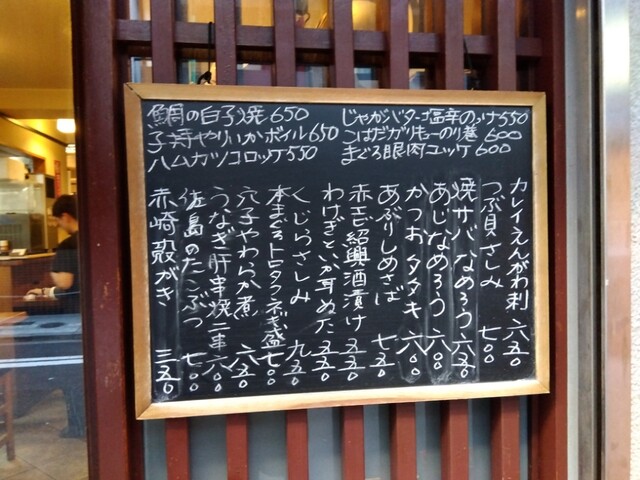 鯛の白子焼 650
子持やりいかボイル 650
ハムカツコロッケ 550
じゃがバター塩辛のっけ 550
こはだガリキューのり巻 600
まぐろ眼肉ユッケ 600
カレイえんがわ刺 六五〇
つぶ貝さしみ 七〇〇
焼サバなめろう 六五〇
あじなめろう 六〇〇
かつおタタキ 六〇〇
あぶりしめさば 七五〇
赤エビ紹興酒漬け 五五〇
わけぎといか耳ぬた 五五〇
くじらさしみ 九五〇
本まぐろトロタクネギ盛 七〇〇
穴子やわらか煮 六五〇
うなぎ肝串焼二串 六〇〇
佐島のたこぶつ 七〇〇
赤崎殻がき 三五〇